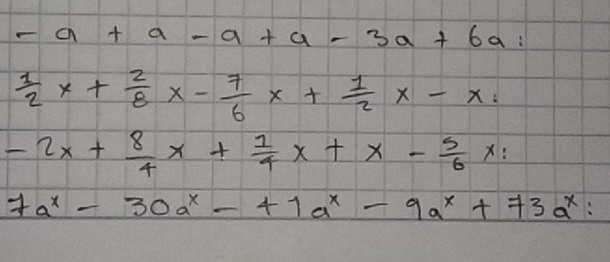 - a + a - a + a - 3a + 6a:
1/2 x + 2/8 x - 7/6 x + 1/2 x - x:
-2x + 8/4 x + 1/4 x + x - 5/6 x:
7aˣ - 30aˣ - +1aˣ - 9aˣ + 73aˣ: